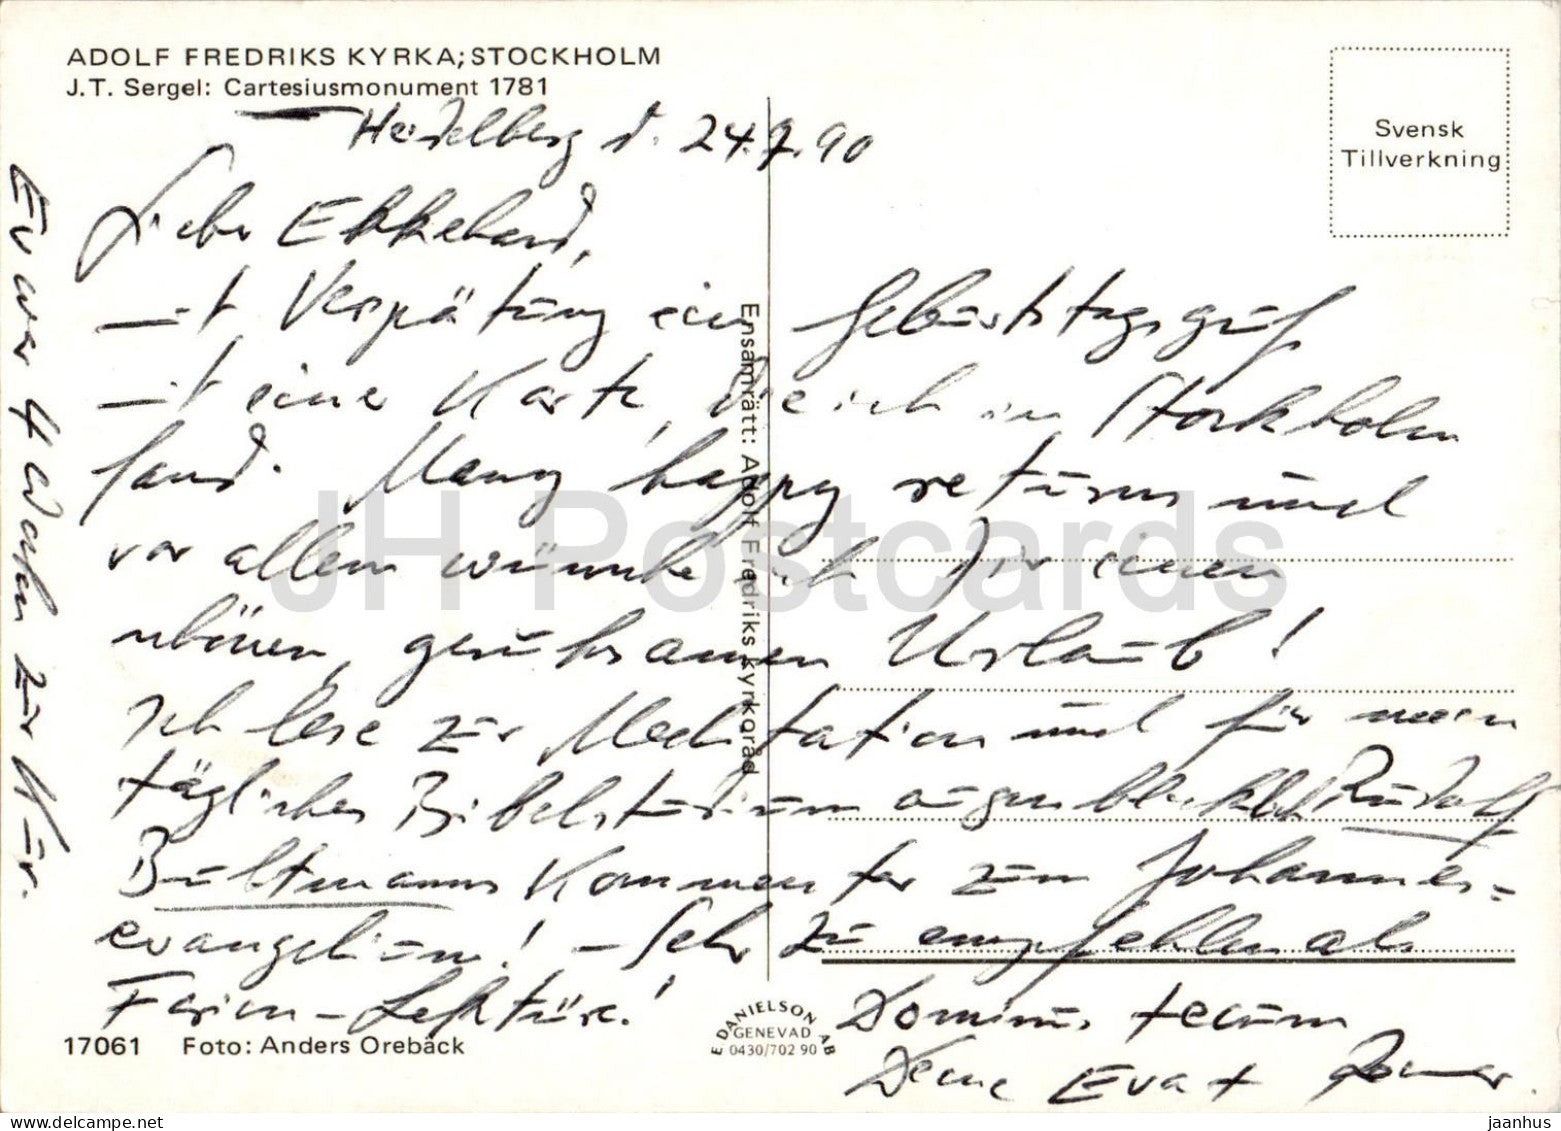 ADOLF FREDRIKS KYRKA; STOCKHOLM
J.T. Sergel: Cartesiusmonument 1781
Svensk
Tillverkning
Heidelberg d. 24.7.90
Lieber Ekkehard,
mit Verspätung ein Geburtstagsgruß
mit einer Karte, die ich in Stockholm
fand. Many happy returns und
vor allem wünsche ich Dir einen
schönen, geruhsamen Urlaub!
Ich lese zur Meditation und für mein
tägliches Bibelstudium augenblicklich Rudolf
Bultmanns Kommentar zum Johannes-
evangelium! – Sehr zu empfehlen als
Ferien-Lektüre!
Dominus tecum
Deine Eva +
Eva war 4 Wochen zur Kur.
Ensamrätt: Adolf Fredriks kyrkoråd
17061 Foto: Anders Orebäck
E. DANIELSON AB
GENEVAD
0430/702 90
JH Postcards
www.hippostcard.com/store/jaanhus